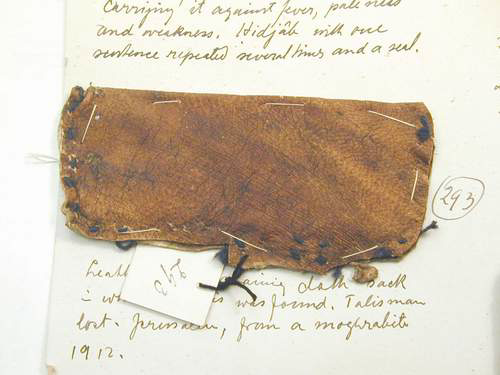 carrying it against fever, paleness
and weakness. Hidjâb with one
sentence repeated several times and a seal.
293
293
Leath aining cloth sack
i w s was found. Talisman
lost. Jerusalem, from a moghrabite
1912.